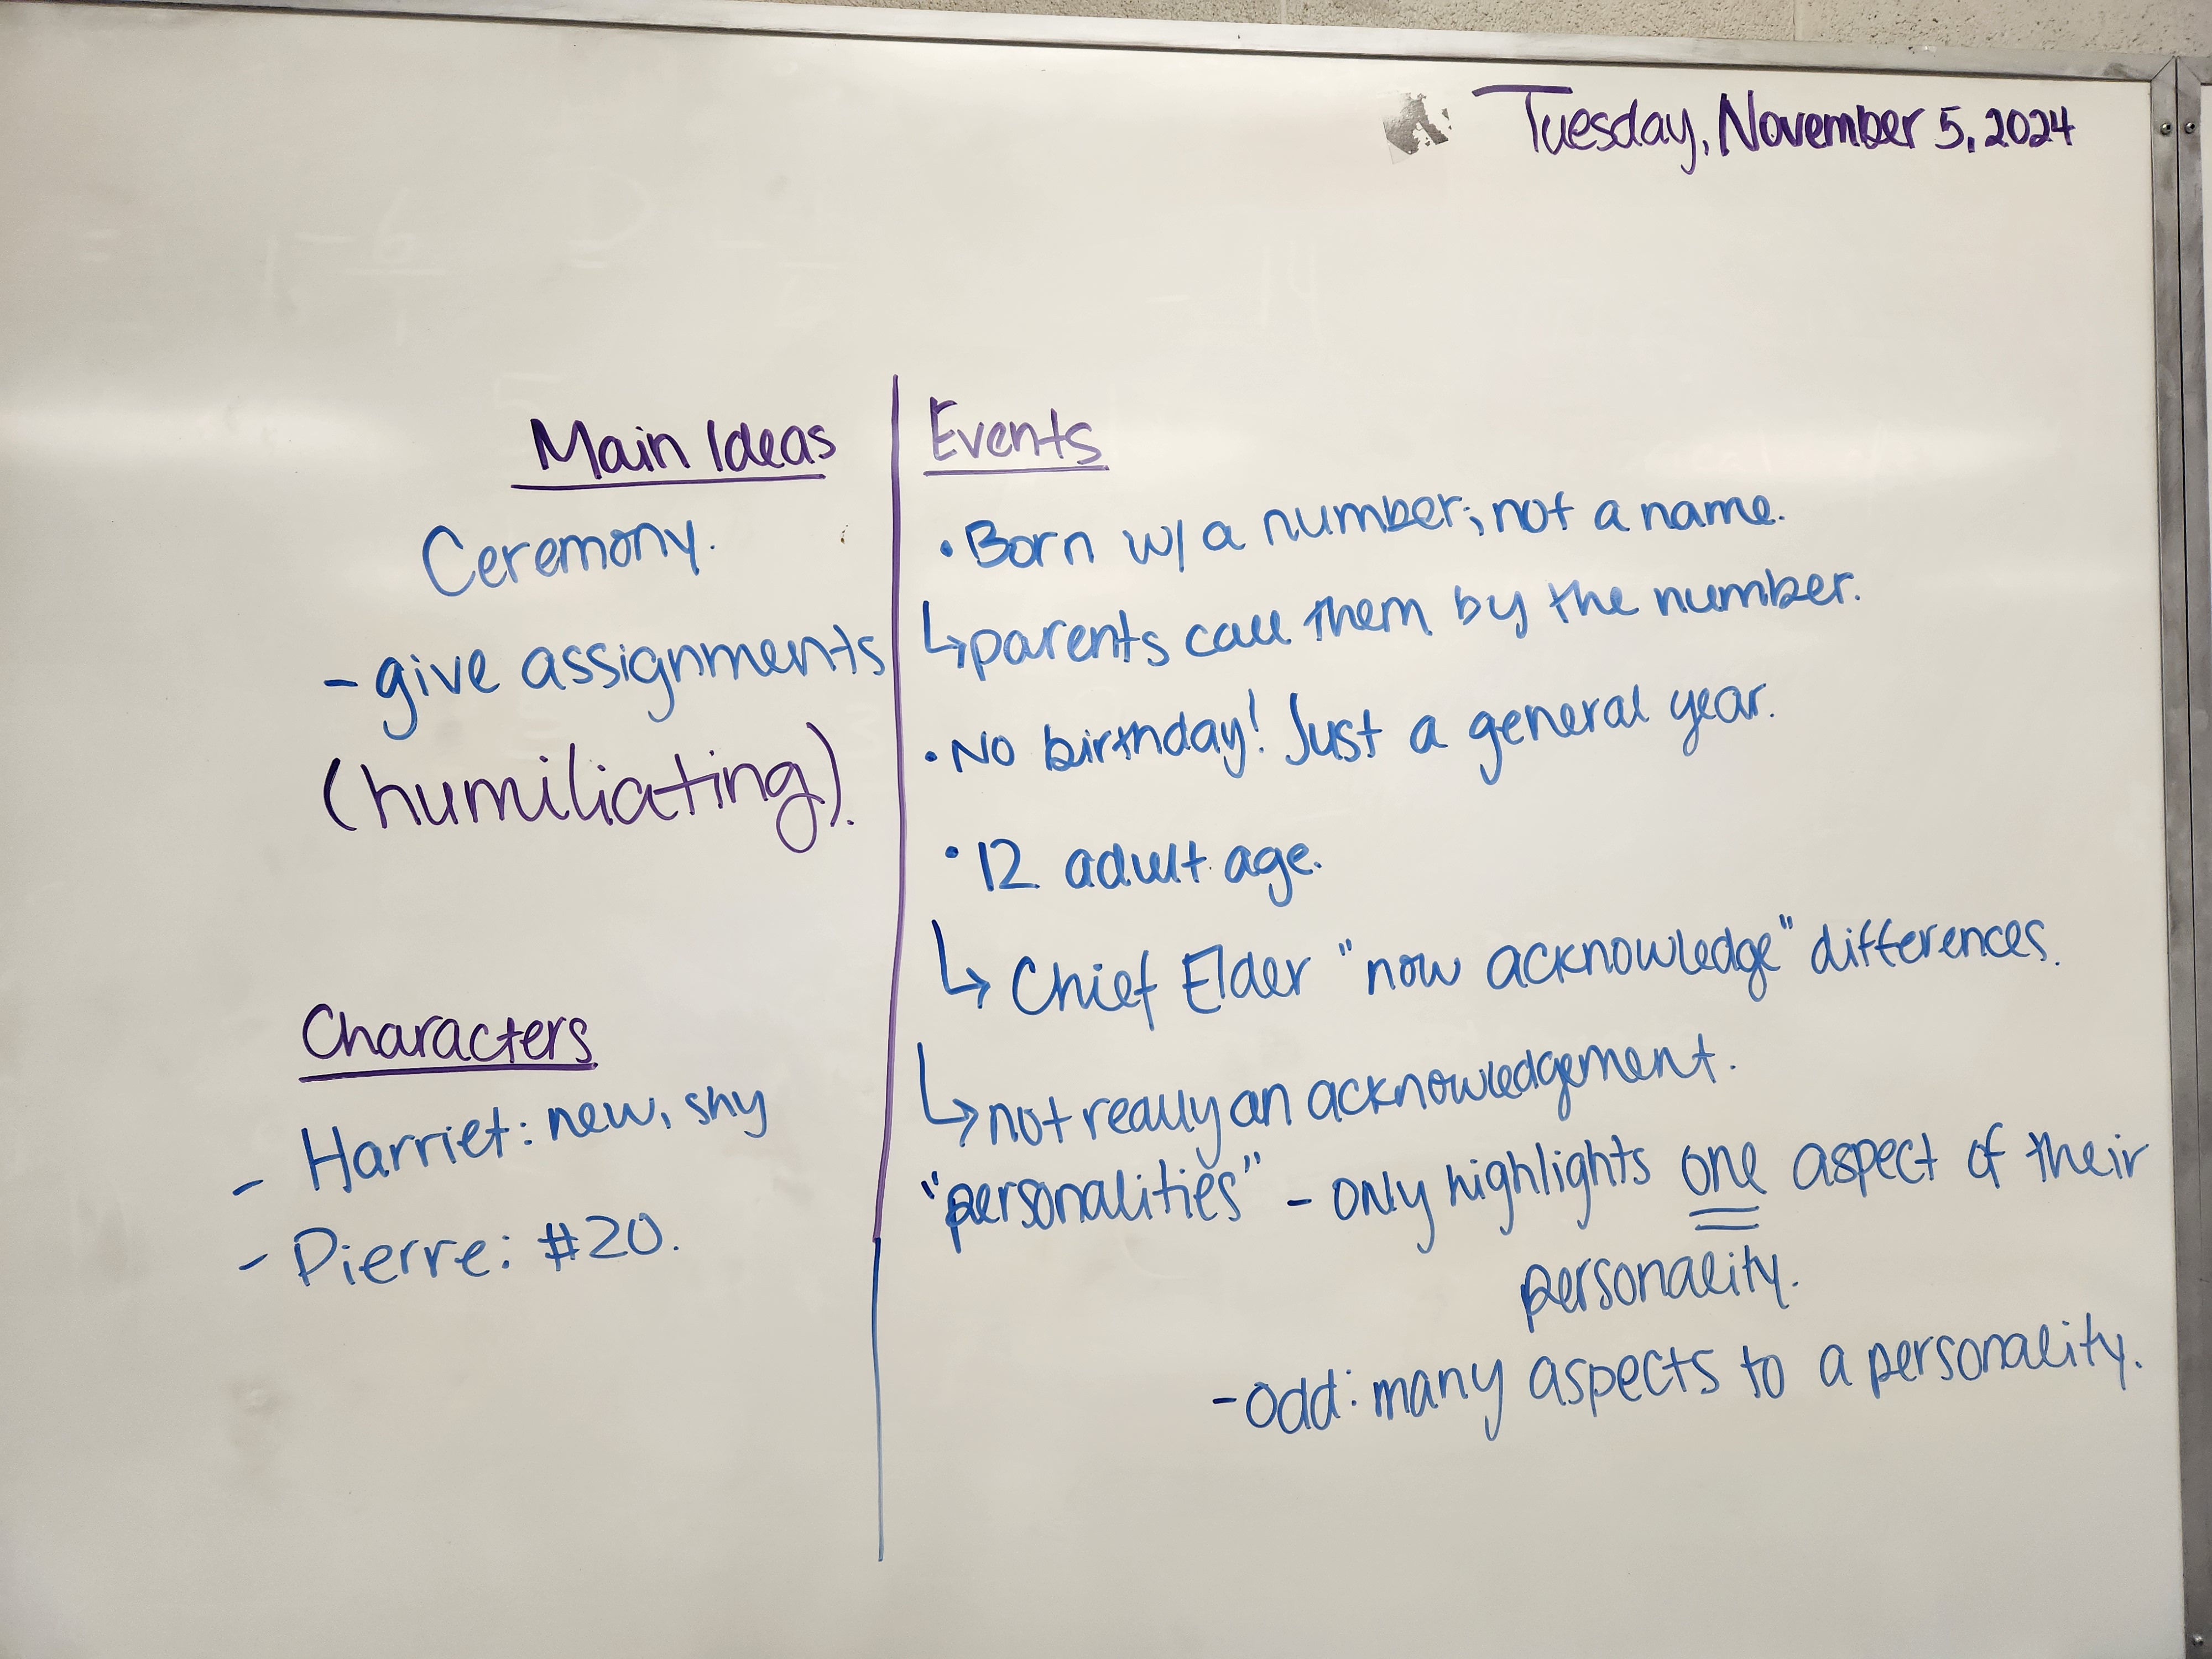 Tuesday, November 5, 2024
Main Ideas
Ceremony.
- give assignments
(humiliating).
Characters
- Harriet: new, shy
- Pierre: #20.
Events
• Born w/ a number; not a name.
↳ parents call them by the number.
• No birthday! Just a general year.
• 12 adult age.
↳ Chief Elder "now acknowledge" differences.
↳ not really an acknowledgement.
"personalities" - only highlights one aspect of their
personality.
- odd: many aspects to a personality.